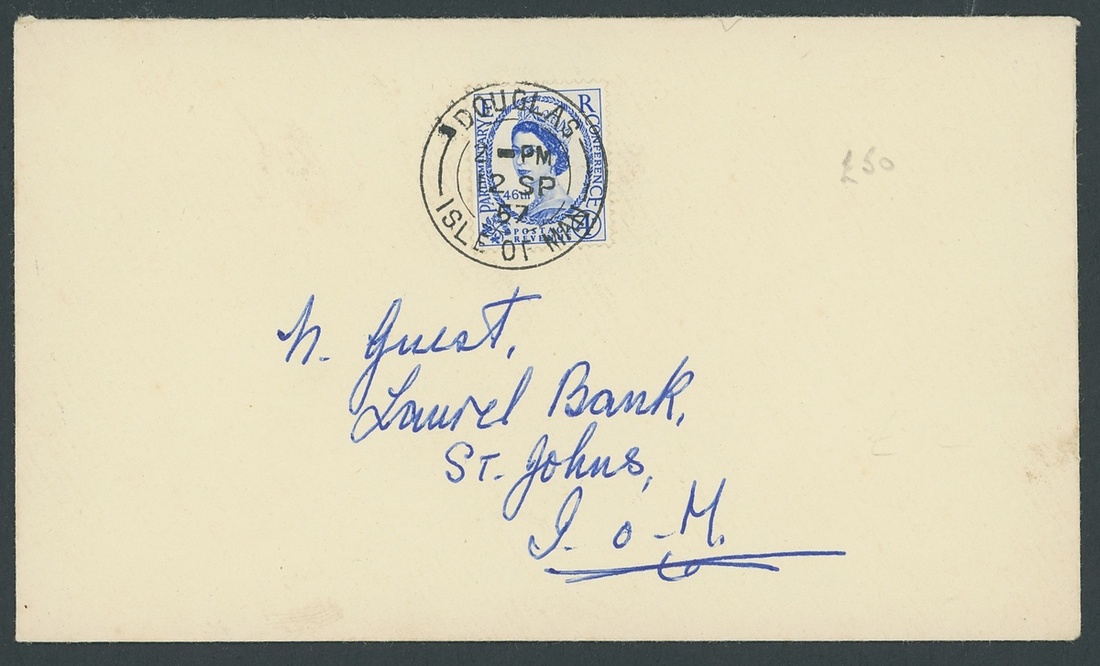 DOUGLAS
PM
2 SP
57
ISLE OF MAN
E R
PARLIAMENTARY
CONFERENCE
46th
POSTAGE
REVENUE
£50
N. Guest,
Laurel Bank,
ST. Johns,
I. o. M.